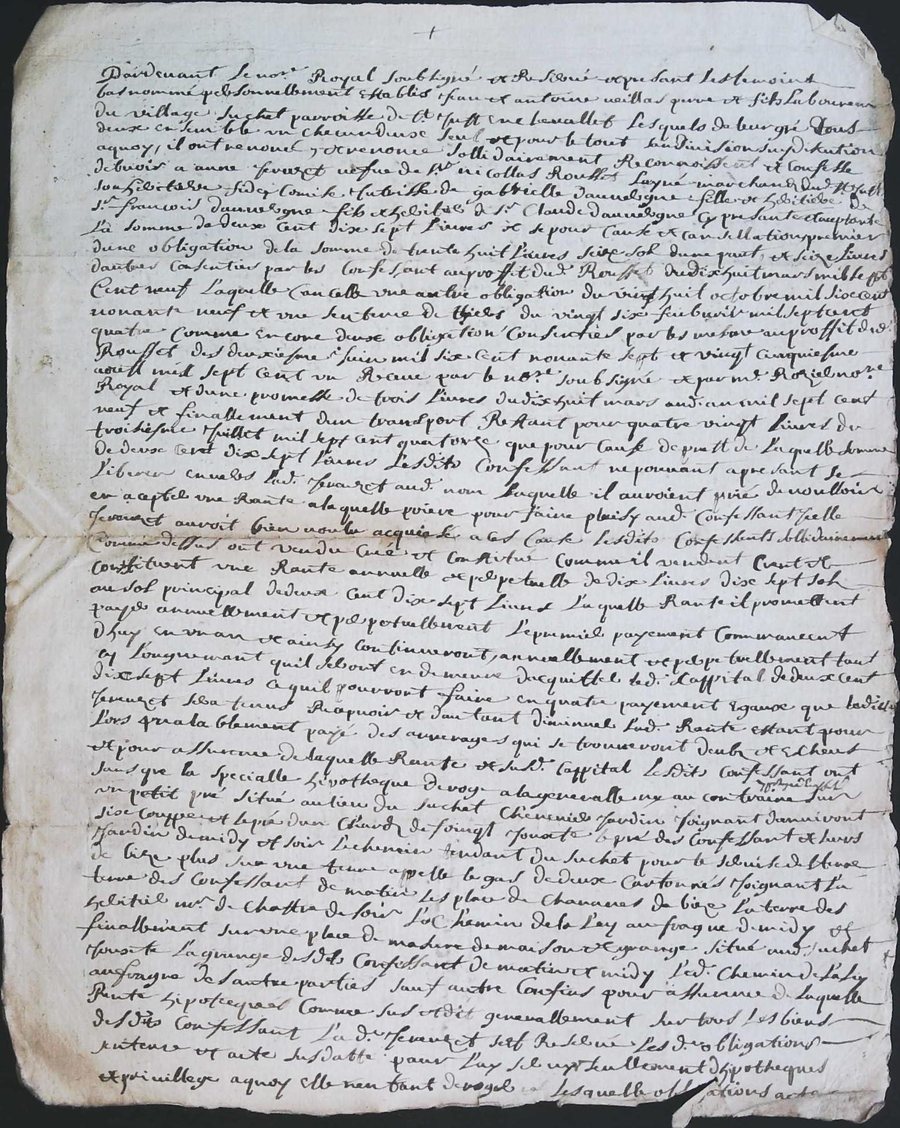 Pardevant le nore Royal soubsigné et Reservé et presant les temoins
bas nommé personnellement Establis Jean et antoine veillas pere et fils Laboureur
du village suchet parroisse de St Just Lesquels de leur gré tous
deux ensemble un chacun deux seul et pour le tout sans division
aquoy, il ont renoncé, et renonce sollidairement Reconnoissent et Confesse
debvoir a anne veufve de Sr nicollas Rousset Layné marchand dud St Just
son heretiere fidey Comise de gabrielle Dauvelogne fille et heritiere de
Sr françois dauvelogne fils et heritier de Sr Claude Dauvelogne Cy presante et aceptante
La somme de deux cent dix sept Livres et se pour Cause et cansellation premier
dune obligation de la somme de trente huit Livres seize sol dune part, et seize Livres
dautres Consenties par les Confessant au proffit dud. Rousset du dix huit mars mil sept
Cent neuf Laquelle Cancelle une autre obligation du vingt huit octobre mil six cent
nonante neuf et une sentence de thiers du vingt six mil sept cent
quatre Comme Encore deux obligation Consenties par les mesme au proffit dud.
Rousset des deuxiesme Juin mil six cent nonante sept et vingt cinquiesme
aoust mil sept cent un Receue par le nore soubsigné et par me nore
Royal et dune promesse de trois Livres du dix huit mars aud. an mil sept cent
neuf et finallement dun transport Restant pour quatre vingt Livres du
troisiesme Juillet mil sept cent quatorze que pour Cause de prest de Laquelle somme
de deux cent dix sept Livres Lesdits Confessant ne pouvant apresant se
Liberer envers Lad. aud. nom Laquelle il auroient prié de voulloir
en acepter une Rante a laquelle priere pour faire plaisir aud. Confessant Jcelle
auroit bien voulu acquiessé a Ces Cause Lesdits Confessants sollidairement
Comme dessus ont vendu Creé et Constitué Comme il vendent Creent et
Constituent une Rante annuelle et perpetuelle de dix Livres dix sept sols
au sol principal de deux Cent dix sept Livres Laquelle Rante il promettent
payer annuellement et perpetuellement Le premier payement Commancent
dhuy En un an et ainsy Continueront, annuellement et perpetuellement tant
Longuemant quil seront en demeure dacquitter led. Cappital de deux cent
dix sept Livres Ce quil pourront faire en quatre payement Egaux que ladite
sera tenue Recepvoir et dautant diminuer Lad. Rante Estant pour
Lors prealablement payé des arrerages qui se trouveront deubs et Echeus
et pour assurance de Laquelle Rante et susd. Cappital Lesdits Confessant ont
sans que la specialle hipotheque deroge a la generalle ny au contraire sur
un petit pré situé au lieu du Suchet Chenevier Jardin Joignant
six Couppe et le pré dun Chard de foin Jouxte le pré des Confessant et leurs
Jardin de midy et soir Le chemin tendant du suchet pour le
de bize plus sur une terre appellé le gas de deux Cartonnés Joignant La
terre des Confessant de matin Les place de de bize La terre des
heritier mr de Chastre de soir Le Chemin de la Ley de midy et
finallement sur une place de masure de maison et grange situé aud. suchet
Jouxte La grange desdits Confessant de matin et midy Led. Chemin de La Ley
des autre parties sauf autre Confins pour assurance de Laquelle
Rente hipotecques Comme sus et dit generallement sur tous Les biens
desdits Confessant Lad. sest Reservé Les d. obligations
sentence et acte susdatte pour Luy servir seullement dhypotheques
et privillege aquoy Elle nentant deroger Lesquelle obligations acte